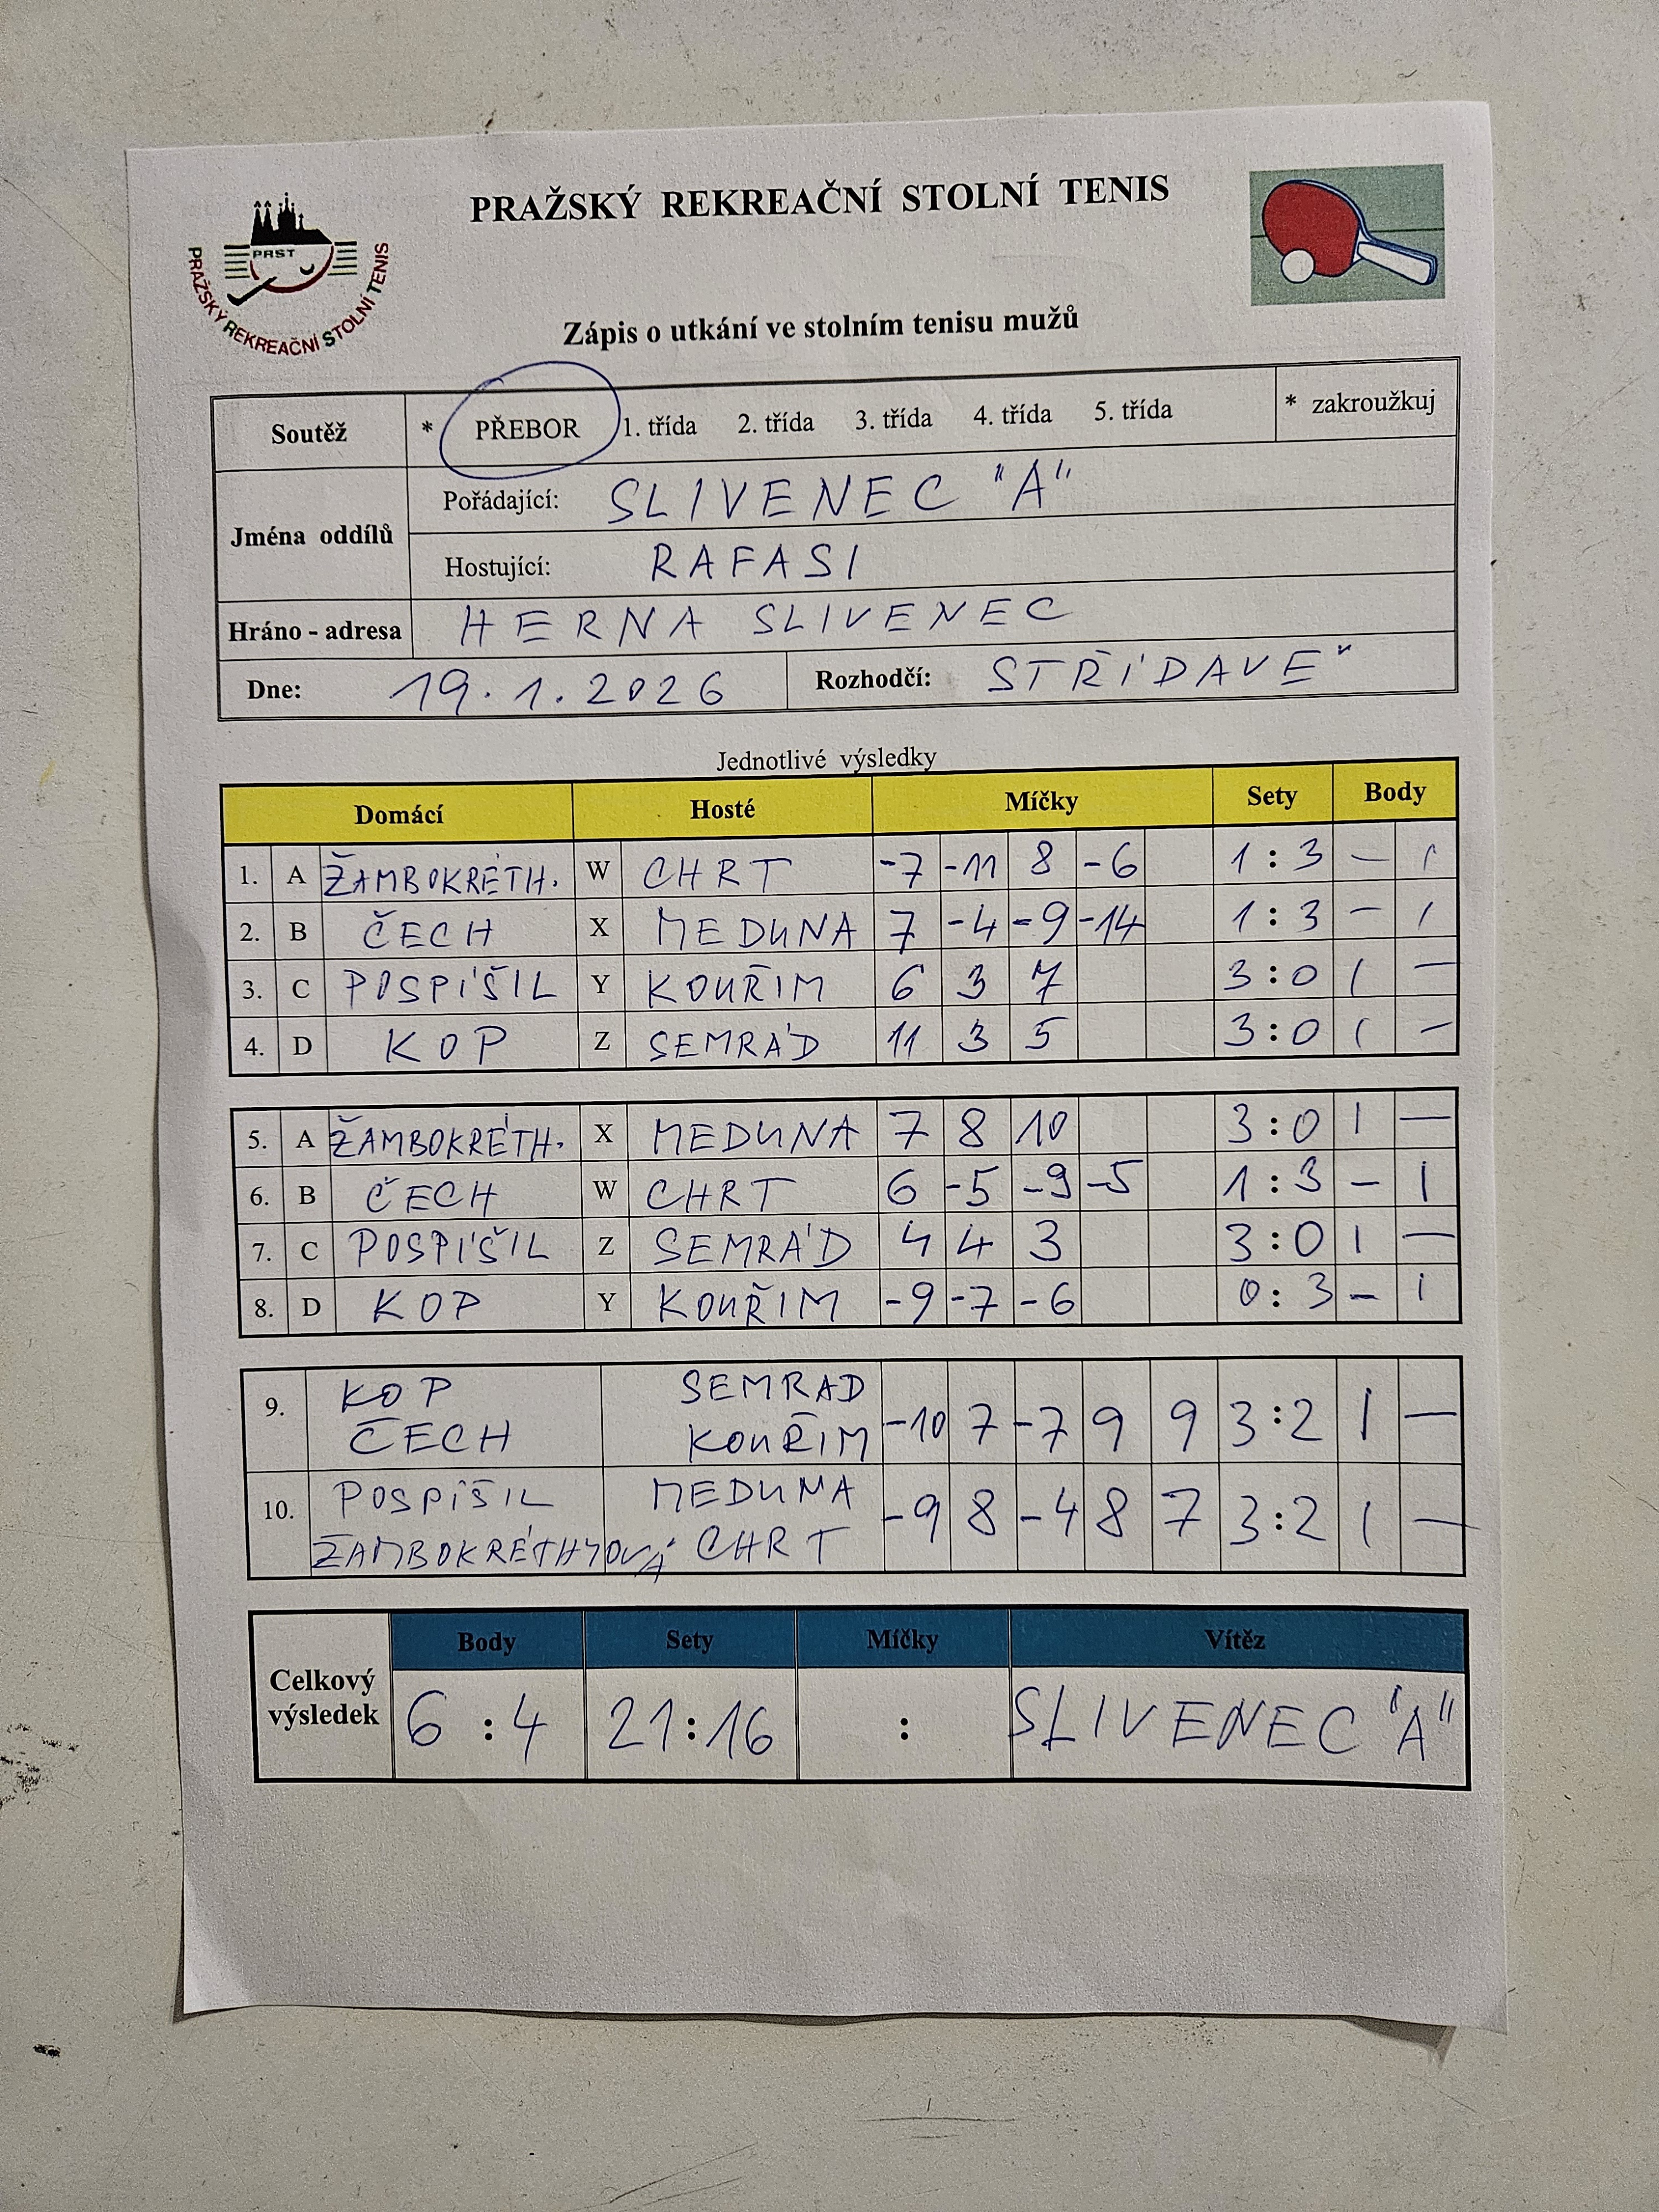 PRAŽSKÝ REKREAČNÍ STOLNÍ TENIS
PRST
PRAŽSKÝ REKREAČNÍ STOLNÍ TENIS
Zápis o utkání ve stolním tenisu mužů
Soutěž * PŘEBOR 1. třída 2. třída 3. třída 4. třída 5. třída * zakroužkuj
Jména oddílů
Pořádající: SLIVENEC "A"
Hostující: RAFASI
Hráno - adresa HERNA SLIVENEC
Dne: 19.1.2026 Rozhodčí: STŘÍDAVĚ
Jednotlivé výsledky
Domácí Hosté Míčky Sety Body
1. A ŽAMBOKRÉTH. W CHRT -7 -11 8 -6 1 : 3 — 1
2. B ČECH X MEDUNA 7 -4 -9 -14 1 : 3 — 1
3. C POSPÍŠIL Y KOUŘIM 6 3 7 3 : 0 1 —
4. D KOP Z SEMRÁD 11 3 5 3 : 0 1 —
5. A ŽAMBOKRÉTH. X MEDUNA 7 8 10 3 : 0 1 —
6. B ČECH W CHRT 6 -5 -9 -5 1 : 3 — 1
7. C POSPÍŠIL Z SEMRÁD 4 4 3 3 : 0 1 —
8. D KOP Y KOUŘIM -9 -7 -6 0 : 3 — 1
9. KOP SEMRAD
ČECH KOUŘIM -10 7 -7 9 9 3 : 2 1 —
10. POSPÍŠIL MEDUNA
ŽAMBOKRÉTHYOVÁ CHRT -9 8 -4 8 7 3 : 2 1 —
Body Sety Míčky Vítěz
Celkový výsledek 6 : 4 21 : 16 : SLIVENEC "A"